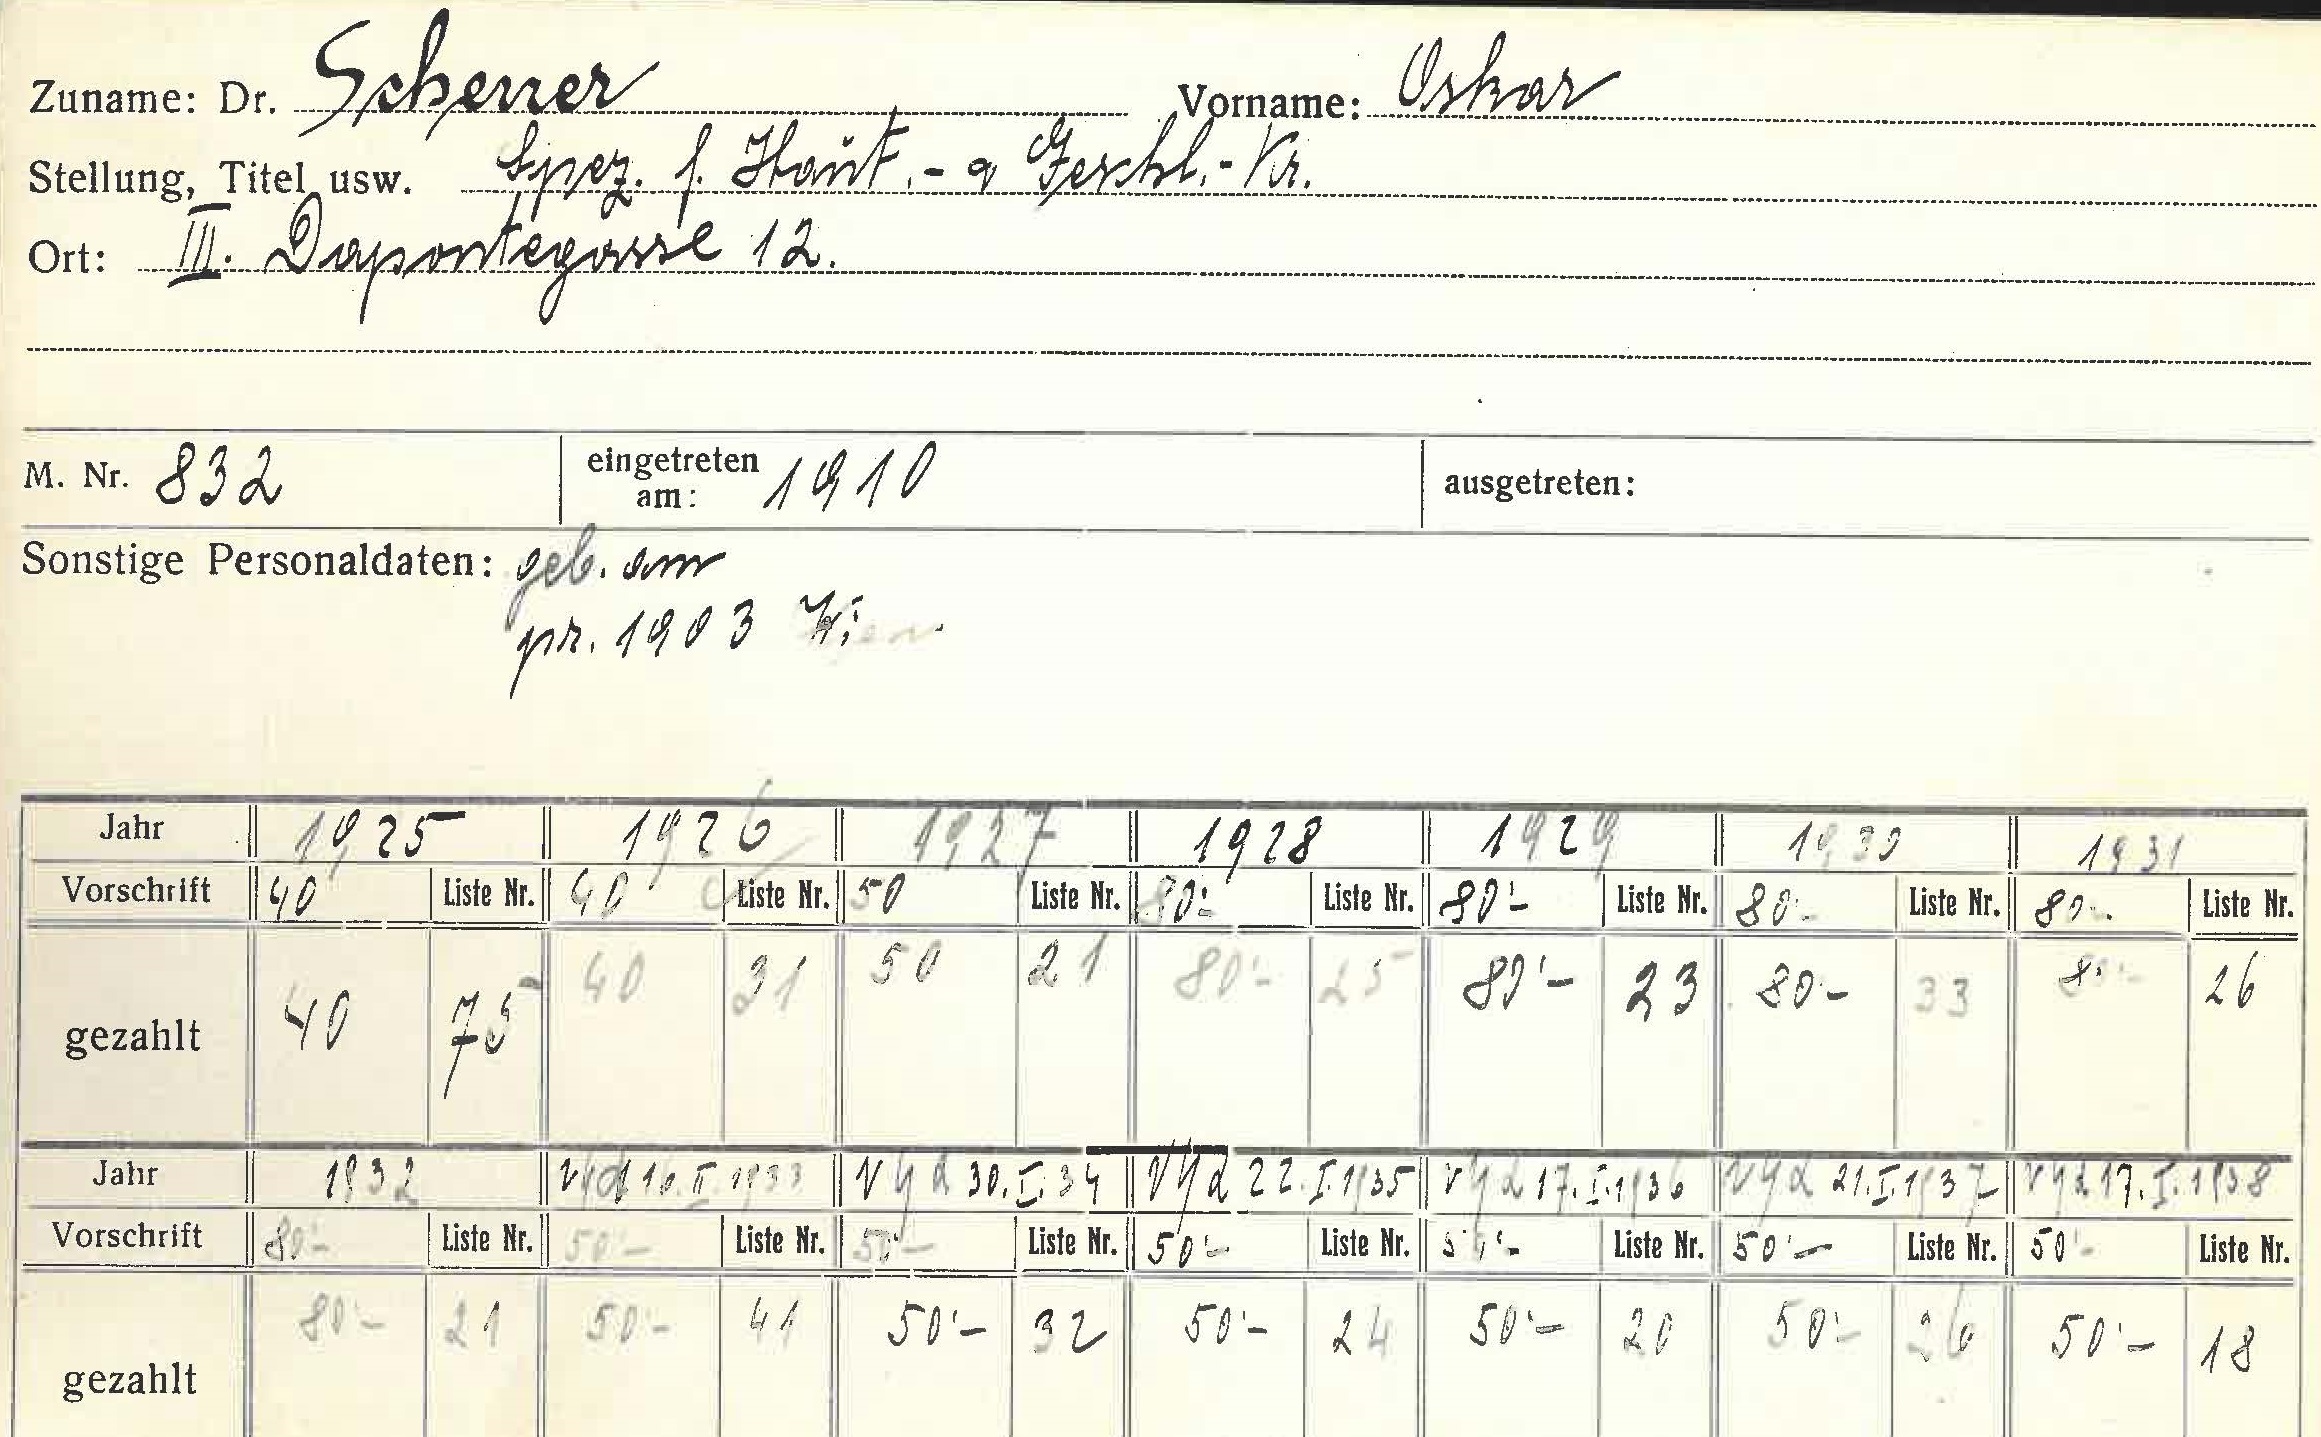 Zuname: Dr. Scherer Vorname: Oskar
Stellung, Titel usw. Spez. f. Haut.- u Geschl.-Kr.
Ort: III. Dapontegasse 12.
M. Nr. 832 eingetreten am: 1910 ausgetreten:
Sonstige Personaldaten: geb. am
pr. 1903 Wien
Jahr 1925 1926 1927 1928 1929 1930 1931
Vorschrift 40 Liste Nr. 40 Liste Nr. 50 Liste Nr. 80·- Liste Nr. 80·- Liste Nr. 80·- Liste Nr. 80·- Liste Nr.
gezahlt 40 75 40 31 50 21 80·- 25 80·- 23 80·- 33 80·- 26
Jahr 1932 16.II.1933 30.I.34 22.I.1935 17.I.1936 21.I.1937 17.I.1938
Vorschrift 80·- Liste Nr. 50·- Liste Nr. 50·- Liste Nr. 50·- Liste Nr. 50·- Liste Nr. 50·- Liste Nr. 50·- Liste Nr.
gezahlt 80·- 21 50·- 41 50·- 32 50·- 24 50·- 20 50·- 26 50·- 18